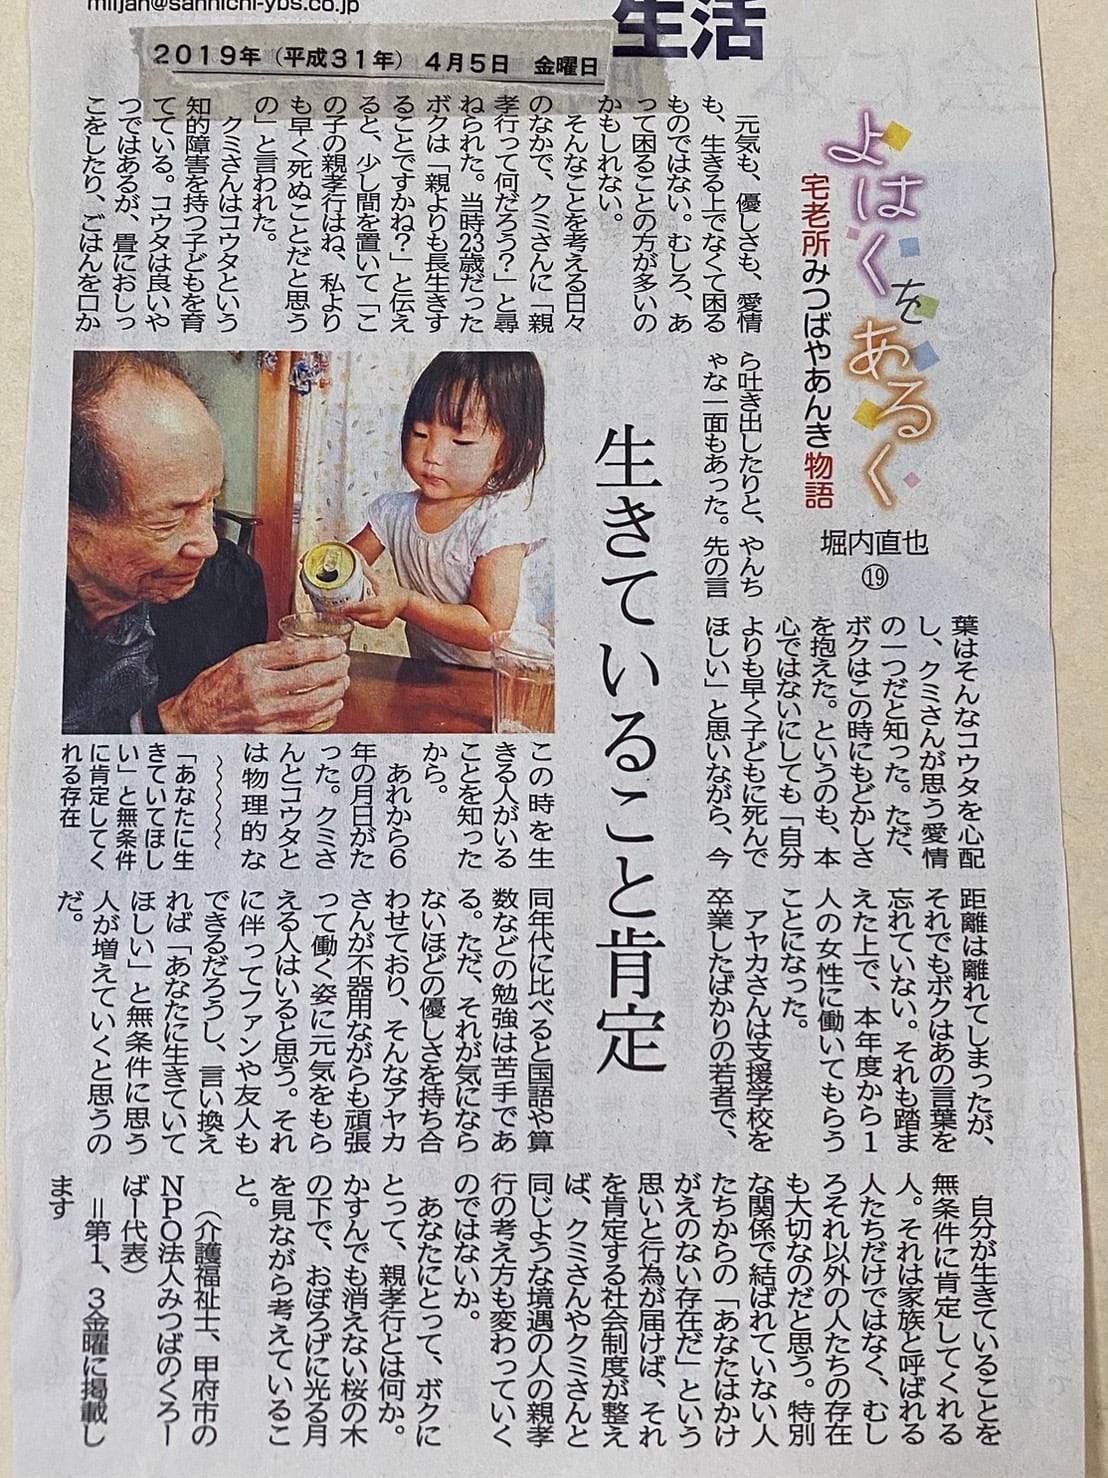 miljan@sannichi-ybs.co.jp
生活
2019年（平成31年）　4月5日　金曜日
よはくをあるく
宅老所みつばやあんき物語
堀内直也
⑲
生きていること肯定
元気も、優しさも、愛情
も、生きる上でなくて困る
ものではない。むしろ、あ
って困ることの方が多いの
かもしれない。
そんなことを考える日々
のなかで、クミさんに「親
孝行って何だろう？」と尋
ねられた。当時23歳だった
ボクは「親よりも長生きす
ることですかね？」と伝え
ると、少し間を置いて「こ
の子の親孝行はね、私より
も早く死ぬことだと思う
の」と言われた。
クミさんはコウタという
知的障害を持つ子どもを育
てている。コウタは良いや
つではあるが、畳におしっ
こをしたり、ごはんを口か
ら吐き出したりと、やんち
ゃな一面もあった。先の言
葉はそんなコウタを心配
し、クミさんが思う愛情
の一つだと知った。ただ、
ボクはこの時にもどかしさ
を抱えた。というのも、本
心ではないにしても「自分
よりも早く子どもに死んで
ほしい」と思いながら、今
この時を生
きる人がいる
ことを知った
から。
あれから6
年の月日がた
った。クミさ
んとコウタと
は物理的な
距離は離れてしまったが、
それでもボクはあの言葉を
忘れていない。それも踏ま
えた上で、本年度から1
人の女性に働いてもらう
ことになった。
アヤカさんは支援学校を
卒業したばかりの若者で、
同年代に比べると国語や算
数などの勉強は苦手であ
る。ただ、それが気になら
ないほどの優しさを持ち合
わせており、そんなアヤカ
さんが不器用ながらも頑張
って働く姿に元気をもら
える人はいると思う。それ
に伴ってファンや友人も
できるだろうし、言い換え
れば「あなたに生きていて
ほしい」と無条件に思う
人が増えていくと思うの
だ。
「あなたに生
きていてほし
い」と無条件
に肯定してく
れる存在
自分が生きていることを
無条件に肯定してくれる
人。それは家族と呼ばれる
人たちだけではなく、むし
ろそれ以外の人たちの存在
も大切なのだと思う。特別
な関係で結ばれていない人
たちからの「あなたはかけ
がえのない存在だ」という
思いと行為が届けば、それ
を肯定する社会制度が整え
ば、クミさんやクミさんと
同じような境遇の人の親孝
行の考え方も変わっていく
のではないか。
あなたにとって、ボクに
とって、親孝行とは何か。
かすんでも消えない桜の木
の下で、おぼろげに光る月
を見ながら考えているこ
と。
（介護福祉士、甲府市の
NPO法人みつばのくろー
ばー代表）
＝第1、3金曜に掲載し
ます